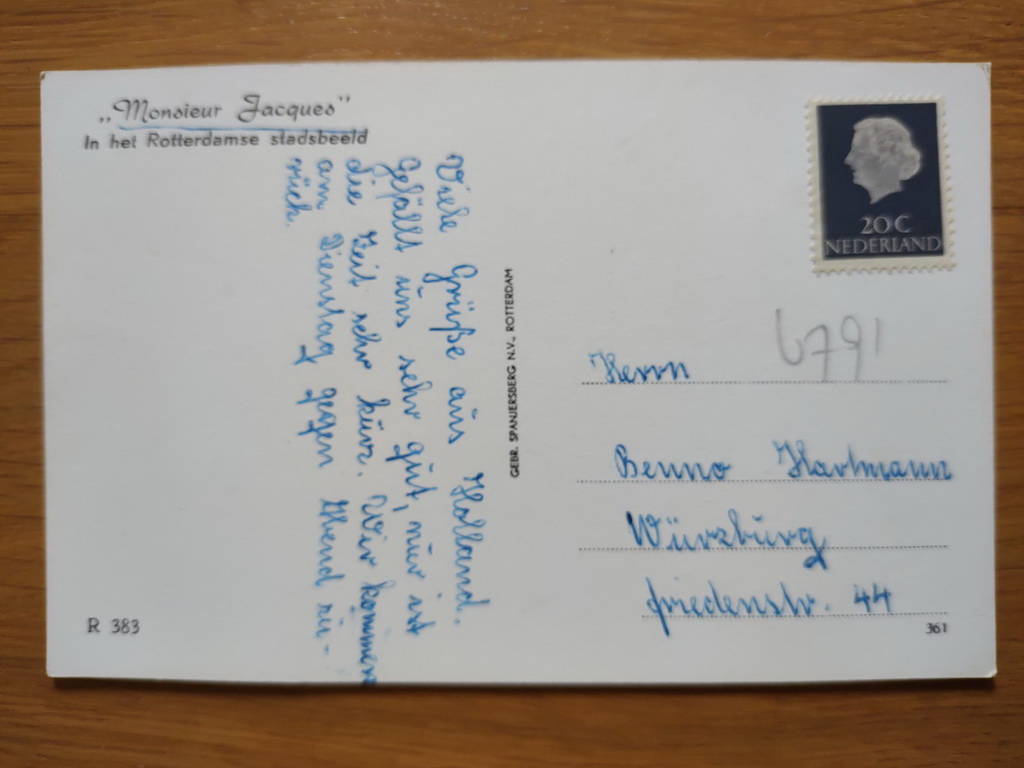 „Monsieur Jacques"
In het Rotterdamse stadsbeeld
Viele Grüße aus Holland.
Gefällt uns sehr gut, nur ist
die Zeit sehr kurz. Wir kommen
am Dienstag gegen Abend zu-
rück.
GEBR. SPANJERSBERG N.V., ROTTERDAM
20 C
NEDERLAND
6791
Herrn
Benno Hartmann
Würzburg
Friedenstr. 44
R 383
361